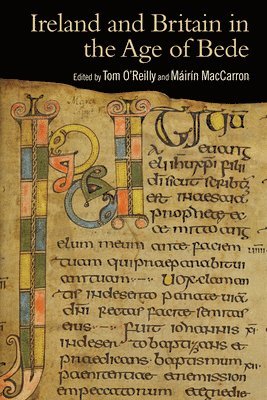 Ireland and Britain in
the Age of Bede
Edited by Tom O'Reilly and Máirín MacCarron
euang
elii ihu xpi fili
di sicut scribtu
est in esaia
propheta ec
ce mitto ang
elum meum ante faciem
tuam qui praeparabit ui
tuam Uox claman
tis in deserto parate uiā
dni rectas facite semitas
eius fuit iohannis
in deser babtizans et
praedicans babtismum
paenitentiae in remission
em peccatorum et egredie